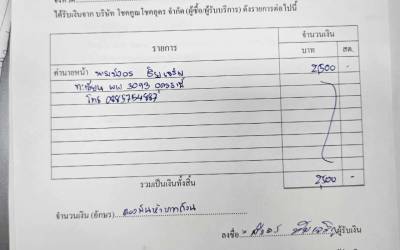 ได้รับเงินจาก บริษัท โชคคูณโชคอุดร จำกัด (ผู้ซื้อ/ผู้รับบริการ) ดังรายการต่อไปนี้
รายการ จำนวนเงิน
บาท สต.
ค่านายหน้า 2,500 -
ทะเบียน ผพ 3093 อุดรธานี
โทร 0885754887
รวมเป็นเงินทั้งสิ้น 2,500 -
จำนวนเงิน (อักษร) สองพันห้าบาทถ้วน
ลงชื่อ ผู้รับเงิน